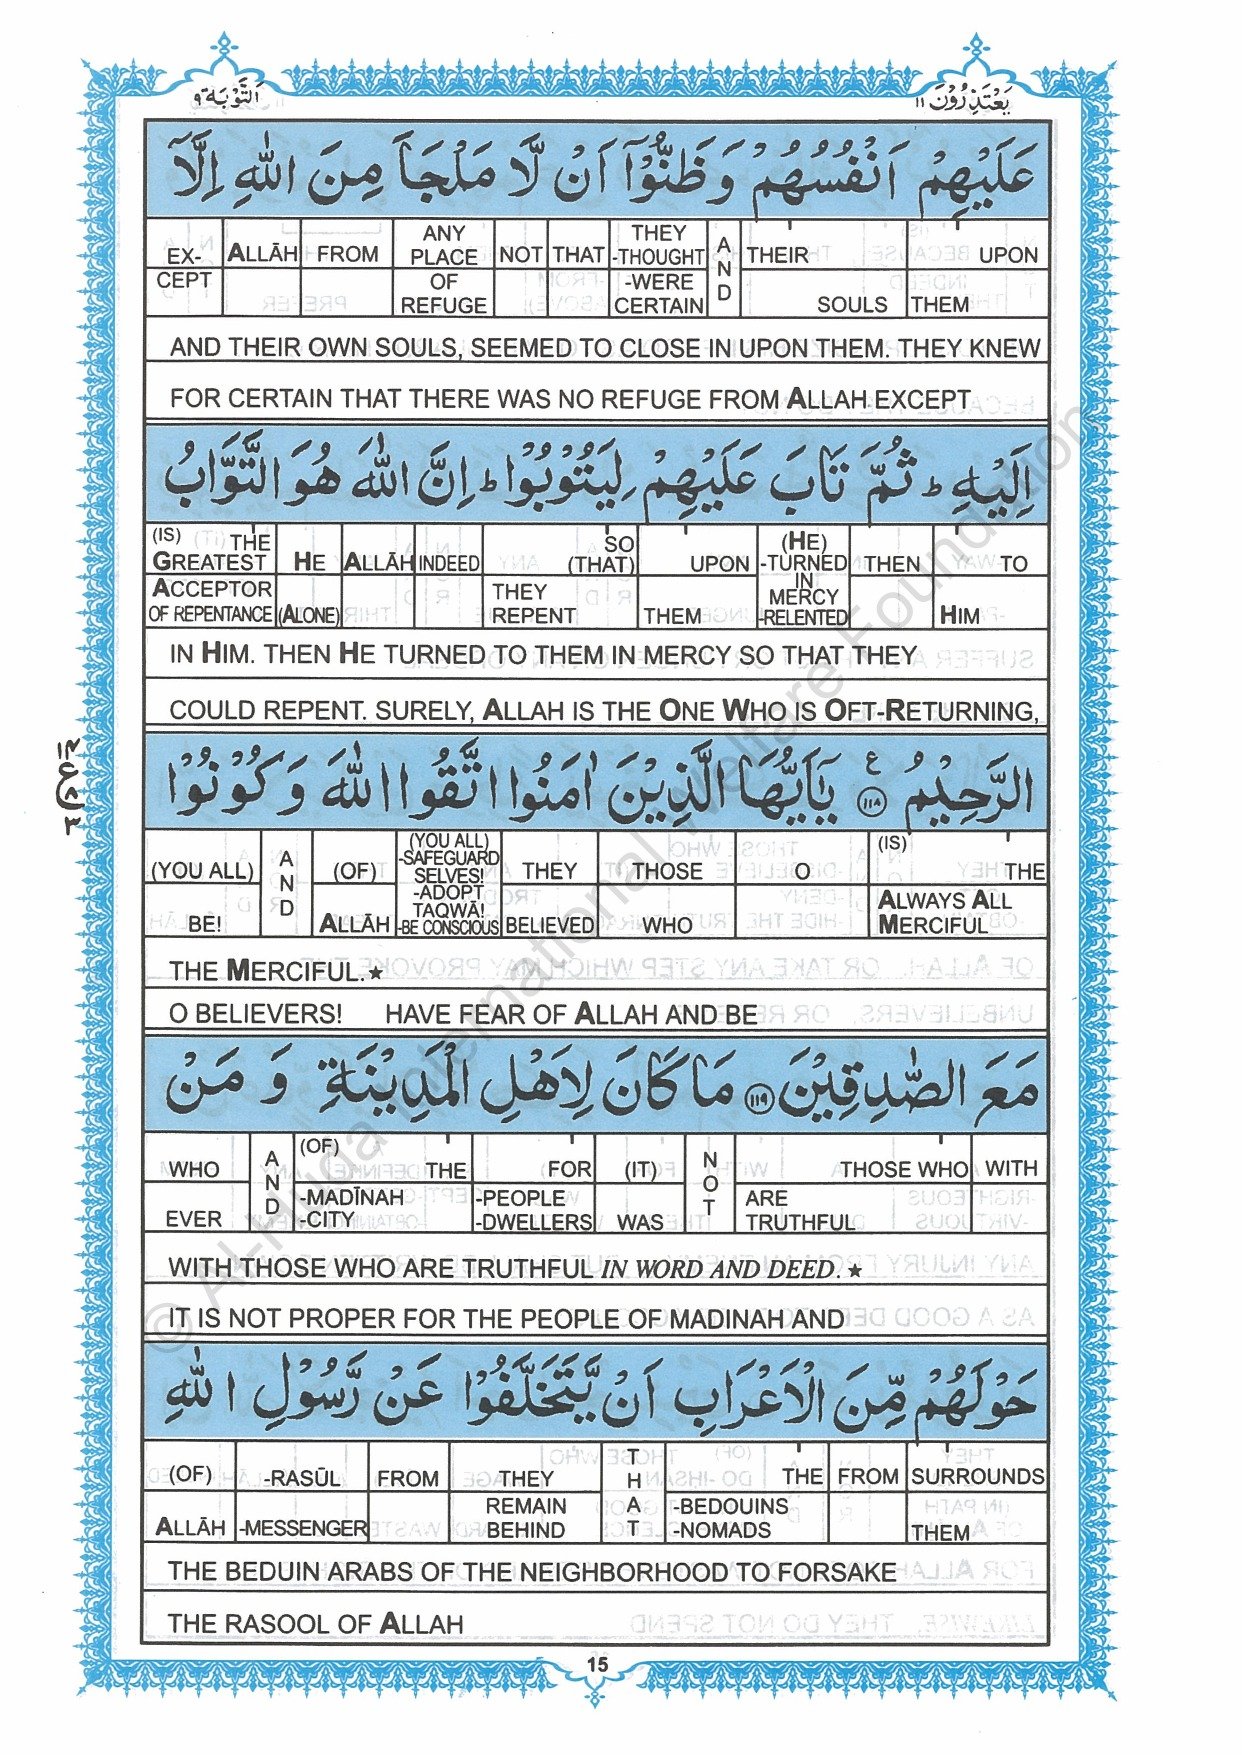 يَعْتَذِرُوْنَ ١١
اَلتَّوْبَة ٩
عَلَيْهِمْ اَنْفُسُهُمْ وَظَنُّوْٓا اَنْ لَّا مَلْجَاَ مِنَ اللّٰهِ اِلَّآ
EX- ALLĀH FROM ANY PLACE NOT THAT THEY -THOUGHT AND THEIR UPON
CEPT OF REFUGE -WERE CERTAIN SOULS THEM
AND THEIR OWN SOULS, SEEMED TO CLOSE IN UPON THEM. THEY KNEW
FOR CERTAIN THAT THERE WAS NO REFUGE FROM ALLAH EXCEPT
اِلَيْهِ ؕ ثُمَّ تَابَ عَلَيْهِمْ لِيَتُوْبُوْا ؕ اِنَّ اللّٰهَ هُوَ التَّوَّابُ
(IS) THE GREATEST HE ALLĀH INDEED SO (THAT) UPON (HE) -TURNED IN THEN TO
ACCEPTOR OF REPENTANCE (ALONE) THEY REPENT THEM MERCY -RELENTED HIM
IN HIM. THEN HE TURNED TO THEM IN MERCY SO THAT THEY
COULD REPENT. SURELY, ALLAH IS THE ONE WHO IS OFT-RETURNING,
الرَّحِيْمُ ﴿١١٨﴾ ع يٰٓاَيُّهَا الَّذِيْنَ اٰمَنُوا اتَّقُوا اللّٰهَ وَكُوْنُوْا
(YOU ALL) AND (OF) (YOU ALL) -SAFEGUARD SELVES! THEY THOSE O (IS) THE
BE! ALLĀH -ADOPT TAQWĀ! -BE CONSCIOUS BELIEVED WHO ALWAYS ALL MERCIFUL
THE MERCIFUL.★
O BELIEVERS! HAVE FEAR OF ALLAH AND BE
مَعَ الصّٰدِقِيْنَ ﴿١١٩﴾ مَا كَانَ لِاَهْلِ الْمَدِيْنَةِ وَ مَنْ
WHO AND (OF) THE FOR (IT) NOT THOSE WHO WITH
EVER -MADĪNAH -CITY -PEOPLE -DWELLERS WAS ARE TRUTHFUL
WITH THOSE WHO ARE TRUTHFUL IN WORD AND DEED.★
IT IS NOT PROPER FOR THE PEOPLE OF MADINAH AND
حَوْلَهُمْ مِّنَ الْاَعْرَابِ اَنْ يَّتَخَلَّفُوْا عَنْ رَّسُوْلِ اللّٰهِ
(OF) -RASŪL FROM THEY THAT THE FROM SURROUNDS
ALLĀH -MESSENGER REMAIN BEHIND -BEDOUINS -NOMADS THEM
THE BEDUIN ARABS OF THE NEIGHBORHOOD TO FORSAKE
THE RASOOL OF ALLAH
15
© Al-Huda International Welfare Foundation